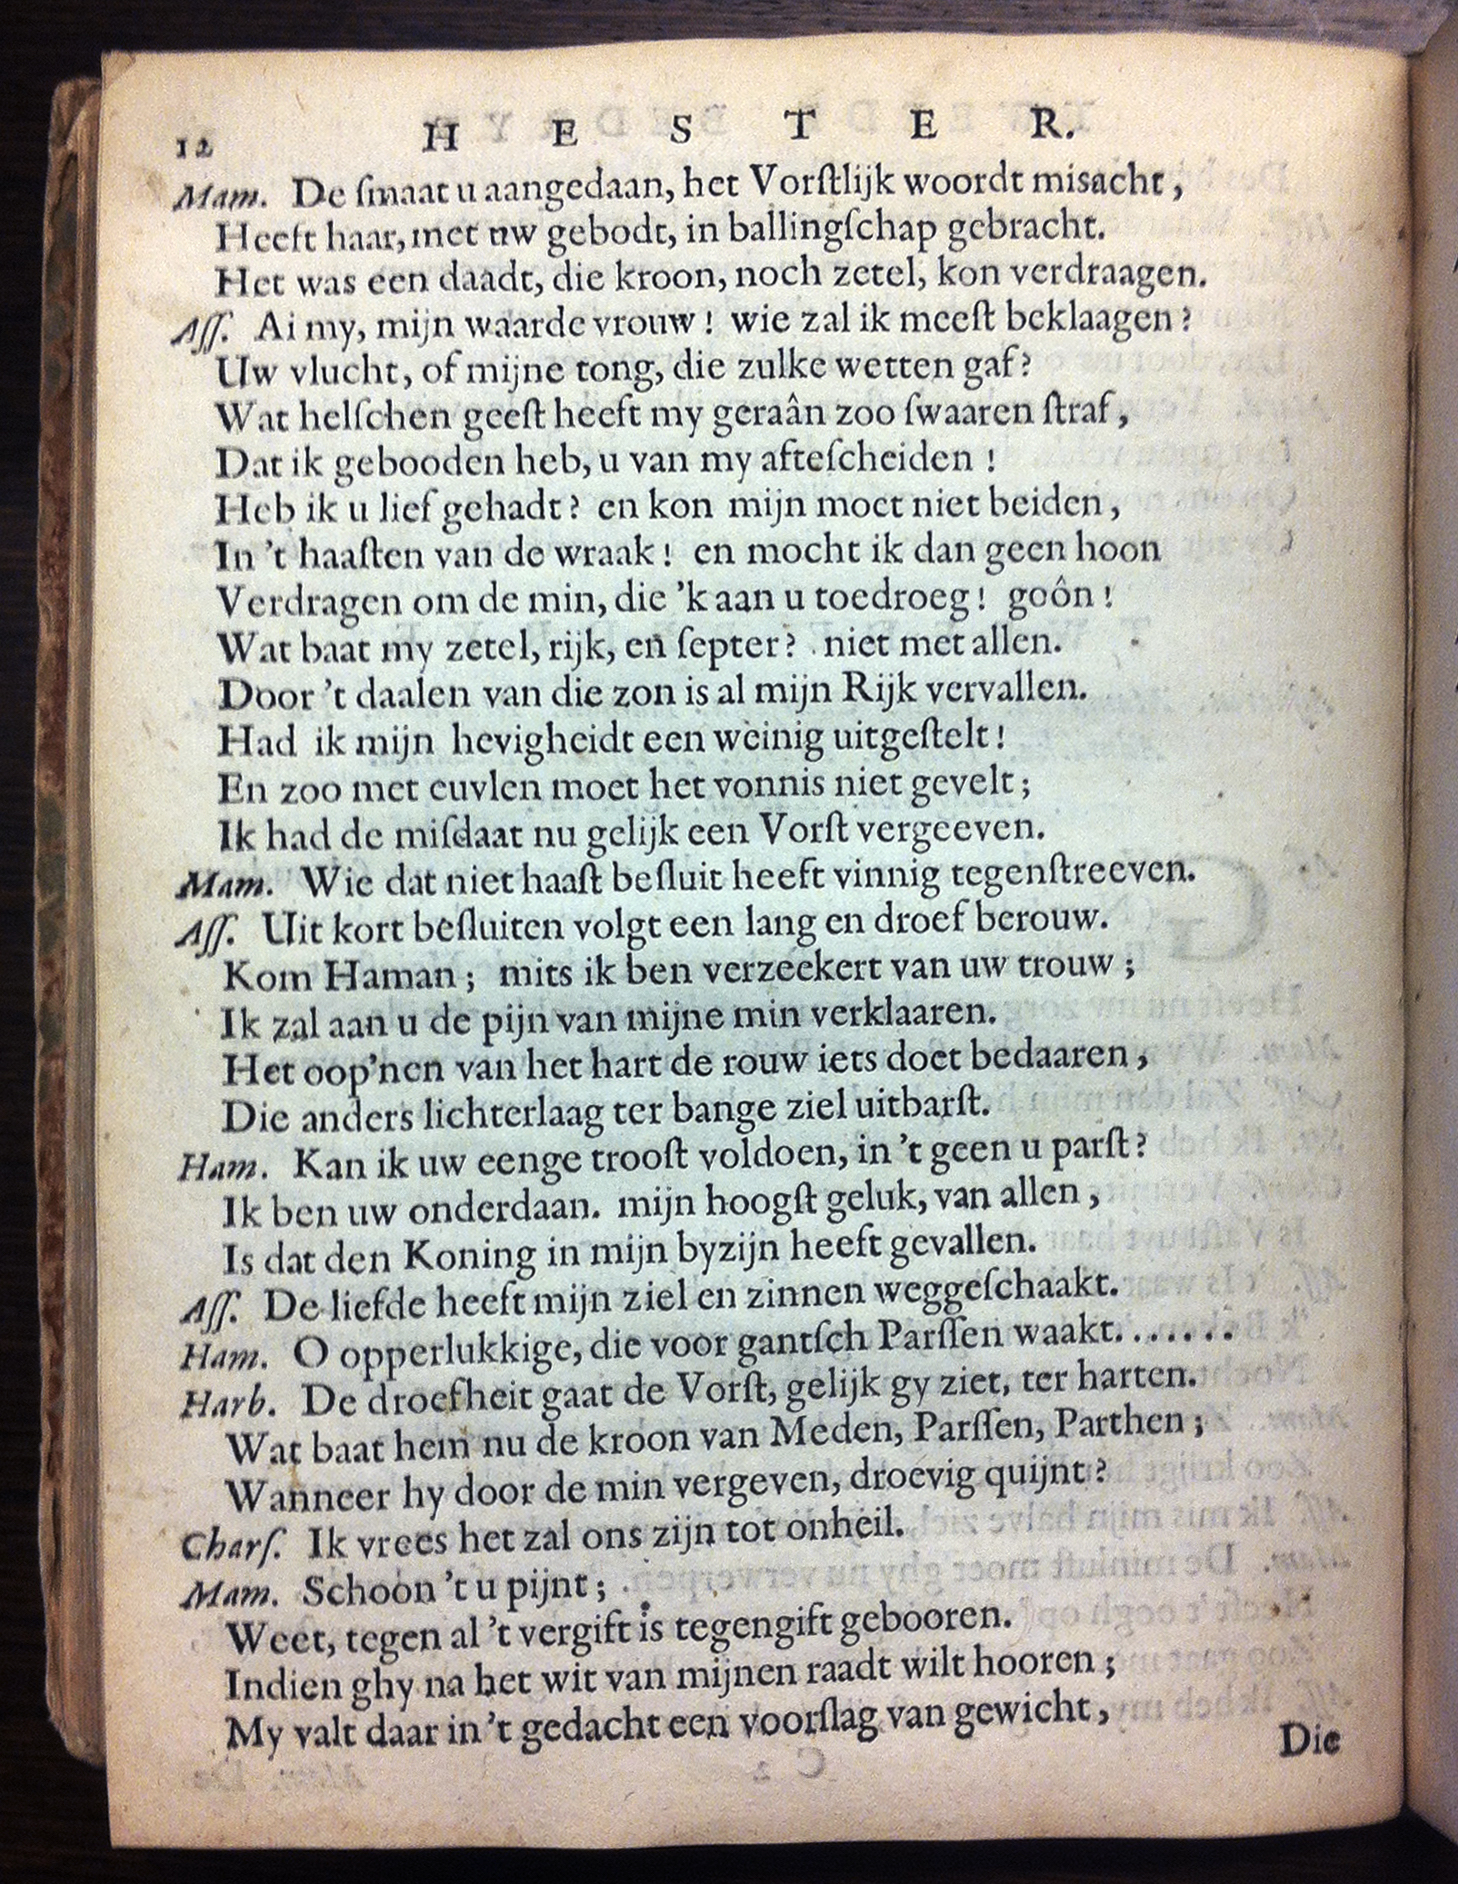 12 HESTER.
Mam. De ſmaat u aangedaan, het Vorſtlijk woordt misacht,
Heeft haar, met uw gebodt, in ballingſchap gebracht.
Het was een daadt, die kroon, noch zetel, kon verdraagen.
Aſſ. Ai my, mijn waarde vrouw! wie zal ik meeſt beklaagen?
Uw vlucht, of mijne tong, die zulke wetten gaf?
Wat helſchen geeſt heeft my geraân zoo ſwaaren ſtraf,
Dat ik gebooden heb, u van my afteſcheiden!
Heb ik u lief gehadt? en kon mijn moet niet beiden,
In 't haaſten van de wraak! en mocht ik dan geen hoon
Verdragen om de min, die 'k aan u toedroeg! goôn!
Wat baat my zetel, rijk, en ſepter? niet met allen.
Door 't daalen van die zon is al mijn Rijk vervallen.
Had ik mijn hevigheidt een weinig uitgeſtelt!
En zoo met euvlen moet het vonnis niet gevelt;
Ik had de miſdaat nu gelijk een Vorſt vergeeven.
Mam. Wie dat niet haaſt beſluit heeft vinnig tegenſtreeven.
Aſſ. Uit kort beſluiten volgt een lang en droef berouw.
Kom Haman; mits ik ben verzeekert van uw trouw;
Ik zal aan u de pijn van mijne min verklaaren.
Het oop'nen van het hart de rouw iets doet bedaaren,
Die anders lichterlaag ter bange ziel uitbarſt.
Ham. Kan ik uw eenge trooſt voldoen, in 't geen u parſt?
Ik ben uw onderdaan. mijn hoogſt geluk, van allen,
Is dat den Koning in mijn byzijn heeft gevallen.
Aſſ. De liefde heeft mijn ziel en zinnen weggeſchaakt.
Ham. O opperlukkige, die voor gantſch Parſſen waakt.......
Harb. De droefheit gaat de Vorſt, gelijk gy ziet, ter harten.
Wat baat hem nu de kroon van Meden, Parſſen, Parthen;
Wanneer hy door de min vergeven, droevig quijnt?
Charſ. Ik vrees het zal ons zijn tot onheil.
Mam. Schoon 't u pijnt;
Weet, tegen al 't vergift is tegengift gebooren.
Indien ghy na het wit van mijnen raadt wilt hooren;
My valt daar in 't gedacht een voorſlag van gewicht,
Die